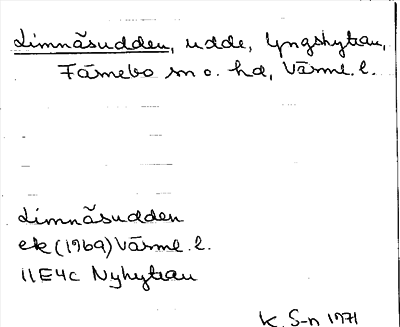 Limnäsudden, udde, Lyngshyttan,
Färnebo sn o. hd, Värml. l.
Limnäsudden
ek (1969) Värml. l.
11E4c Nyhyttan
K. S-n 1971